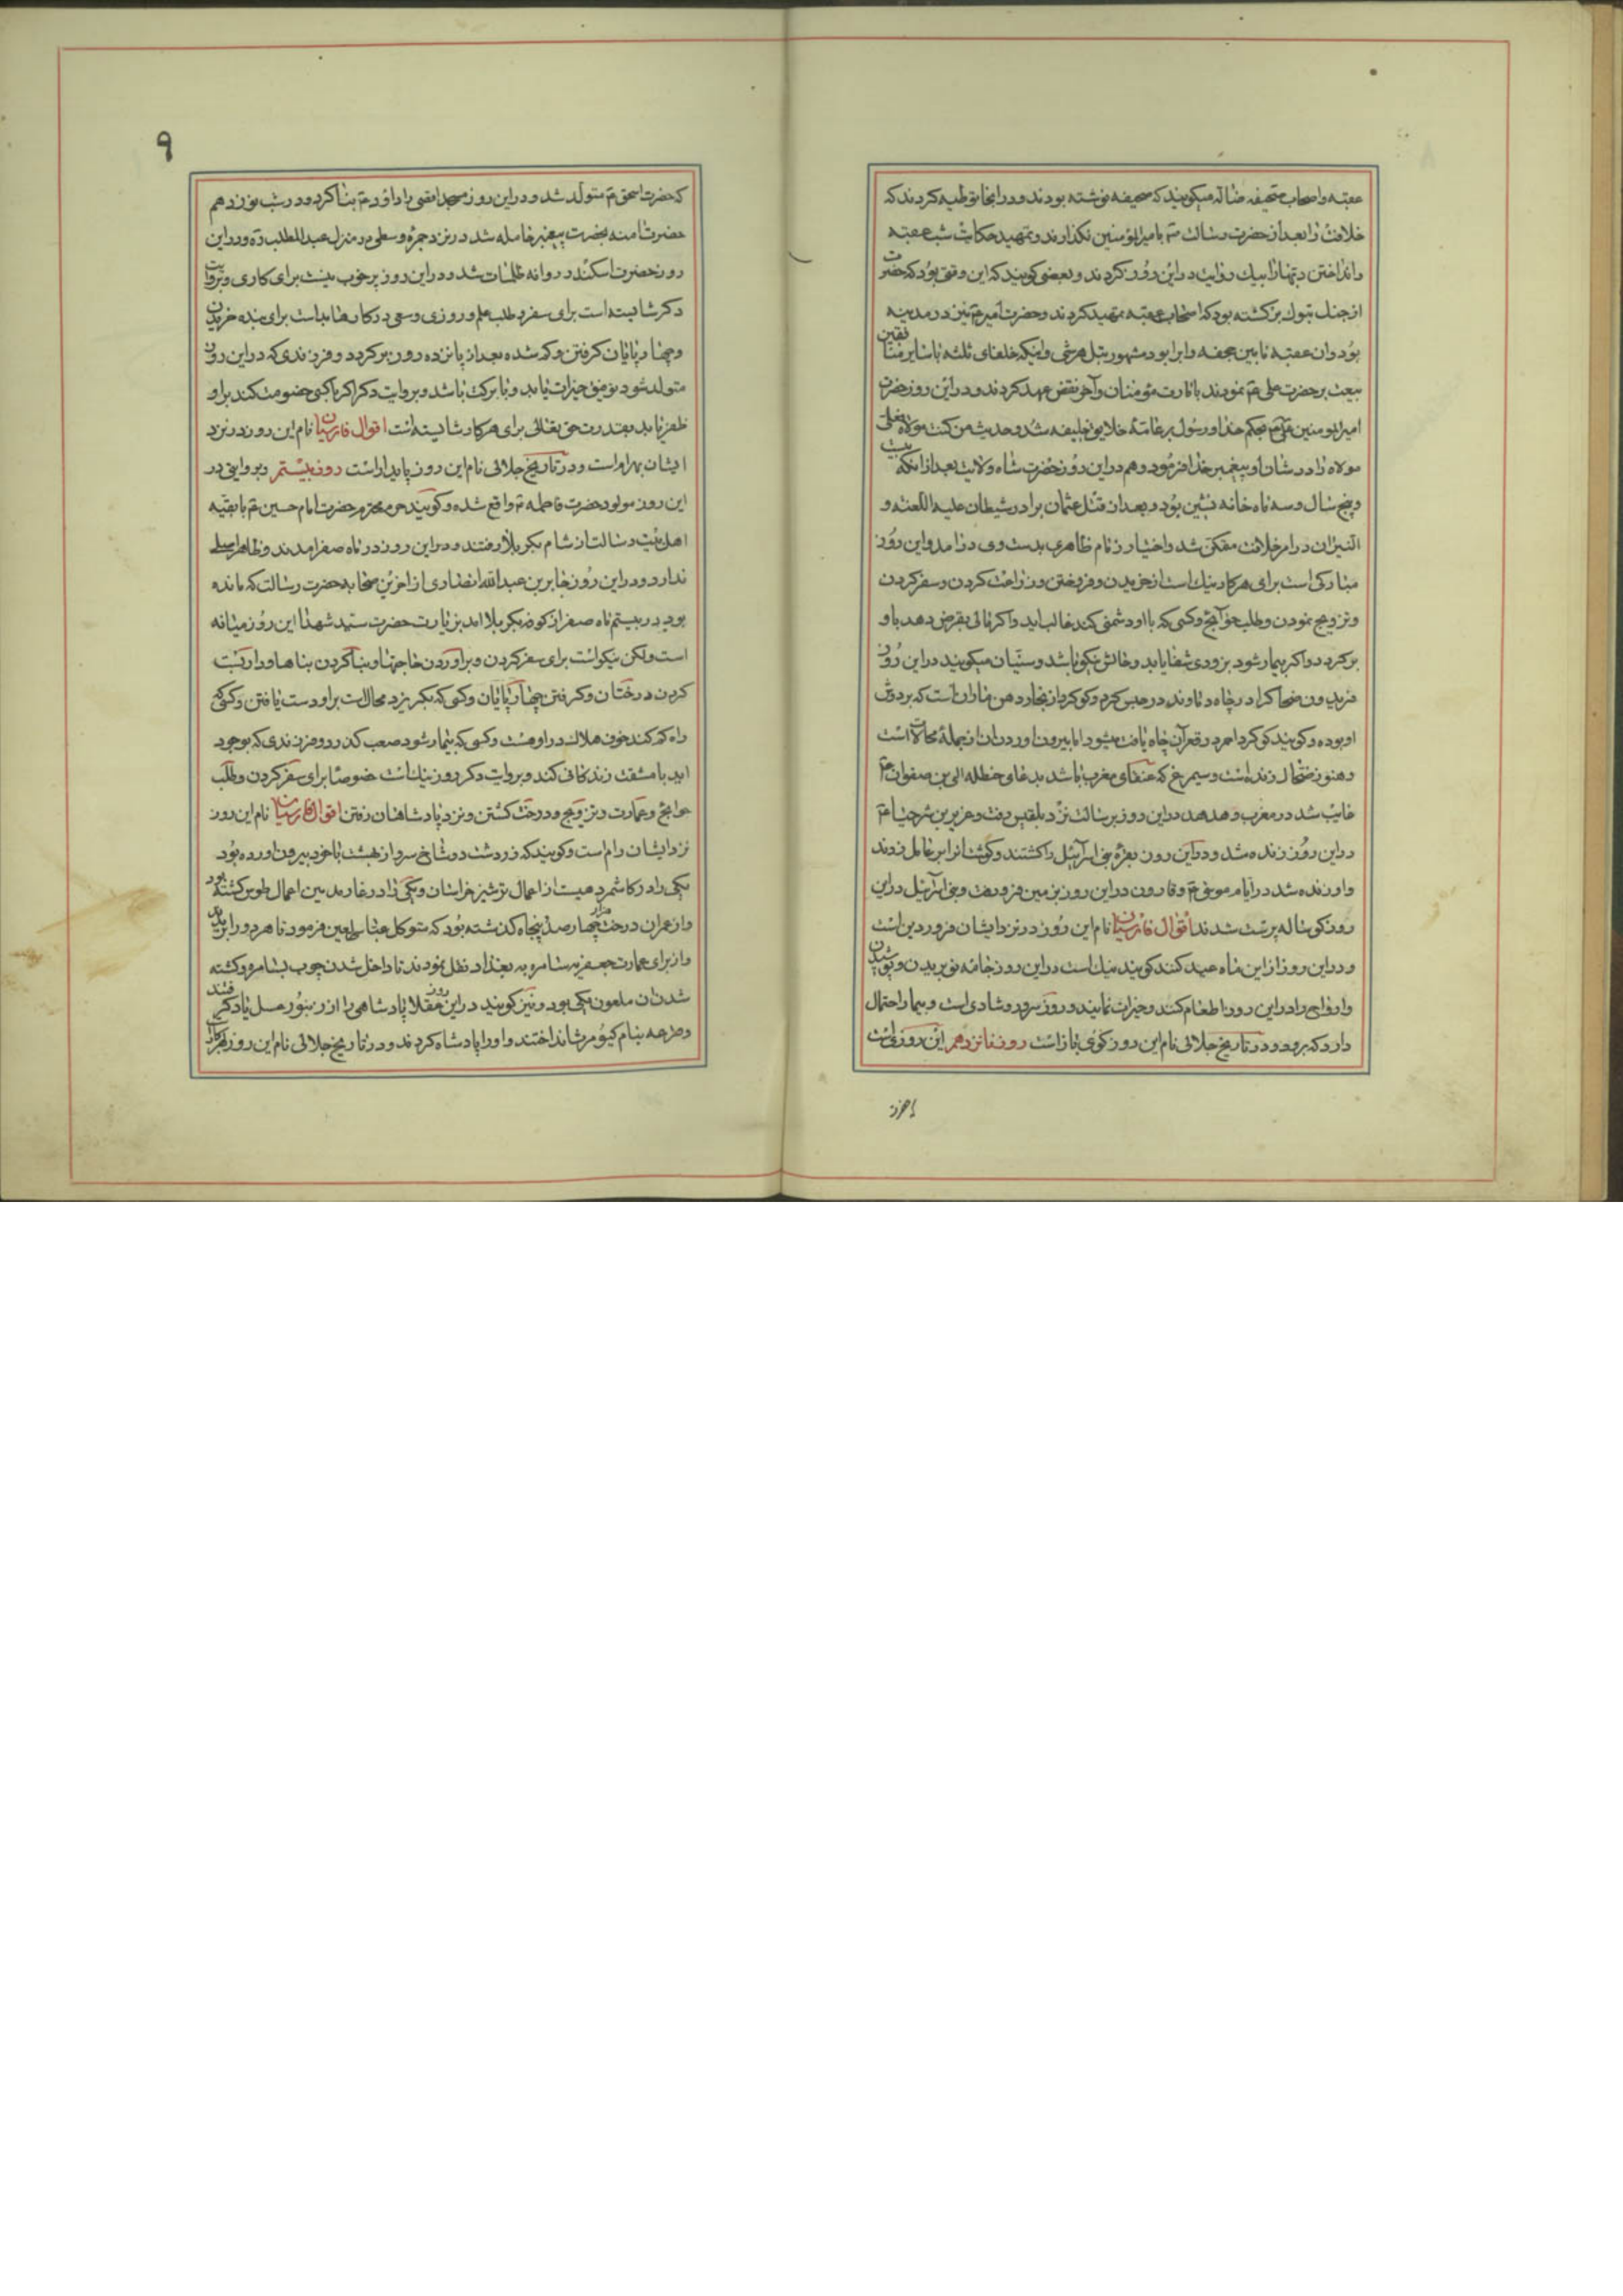 عقبه واصحاب صحیفه ضاله میکویند که صحیفه نوشته بودند ودر انجا توطیه کردند که
خلافت را بعد از حضرت رسالت ص بامیرالمؤمنین نکذارند وتمهید حکایت شب عقبه
وانداختن دبها را بیك روایت در این روز کردند وبعضی کویند که این وقتی بود که حضرت
از جنك تبوك برکشته بود که اصحاب عقبه تمهید کردند وحضرت امیر ع نیز در مدینه
بود وان عقبه ما بین جحفه وابوا بود مشهور بتل هرشی واینکه خلفای ثلثه با سایر منافقین
بیعت بر حضرت علی ع نمودند بامارت مؤمنان وآخر نقض عهد کردند ودر این روز حضرت
امیرالمومنین علی ع بحکم خدا ورسول بر عامهٔ خلایق خلیفه شد وحدیث من کنت مولاه فعلی
مولاه را در شان او پیغمبر خدا فرمود وهم در این روز حضرت شاه ولایت بعد از انکه بیست
وپنج سال وسه ماه خانه نشین بود وبعد از قتل عثمان برادر شیطان علیه اللعنه و
النیران در امر خلافت متمکن شد واختیار زمام ظاهری بدست وی درامد واین روز
مبارکی است برای هر کار نیك است از خریدن وفروختن وزراعت کردن وسفر کردن
وتزویج نمودن وطلب حوآئج وکسی که با او دشمنی کند غالب اید واکر مالی بقرض دهد باو
برکردد واکر بیمار شود بزودی شفا یابد وحالش نیکو باشد وسنیان میکویند در این روز
فریدون ضحاك را در چاه دماوند در حبس کرد وکوکرد از بخار دهن ماران است که بر دوش
او بوده وکویند کوکرد احمر در قعر آن چاه یافت میشود اما بیرون اوردن ان از جملهٔ محالات است
وهنوز ضحاك زنده است وسیمرغ که عنقای مغرب باشد بدعای حنظله ابن صفوان ع
غایب شد در مغرب وهدهد در این روز برسالت نزد بلقیس رفت وعزیر بن شرحیا ع
در این روز زنده شد ودر این روز بقرهٔ بنی اسرآئیل را کشتند وکوشت انرا بر عامیل زدند
واو زنده شد در ایام موسی ع وقارون در این روز بزمین فرو رفت وبنی اسرآئیل در این
روز کوساله پرست شدند اقوال فارسیان نام این روز در نزد ایشان فروردین است
ودر این روز از این ماه عید کنند کویند نیك است در این روز جامه نو بریدن وپوشیدن
وارواح را در این روز اطعام کنند وخیرات نمایند وروز سرور وشادی است وبیمار احتمال
دارد که برود ودر تاریخ جلالی نام این روز کوی باز است روز نوزدهم این روزی است
که حضرت اسحق ع متولد شد ودر این روز مسجد اقصی را داود ع بنا کرد ودر شب نوزدهم
حضرت امنه بحضرت پیغمبر حامله شد در نزد جمرهٔ وسطی در منزل عبدالمطلب ره ودر این
روز حضرت اسکندر روانه ظلمات شد ودر این روز پر خوب نیست برای کاری وبروایت
دکر شایسته است برای سفر وطلب علم وروزی وسعی در کارها بد است برای بنده خریدن
وچهارپایان کرفتن وکم شده بعد از پانزده روز برکردد وفرزندی که در این روز
متولد شود توفیق خیرات یابد وبا برکت باشد وبروایت دکر اکر با کسی خصومت کند بر او
ظفر یابد بقدرت حق تعالی برای هر کار شایسته است اقوال فارسیان نام این روز در نزد
ایشان بهرام است ودر تاریخ جلالی نام این روز پایدار است روز بیستم وبروایتی در
این روز مولود حضرت فاطمه ع واقع شده وکویند حرم محترم حضرت امام حسین ع با بقیه
اهل بیت رسالت از شام بکربلا رفتند ودر این روز در ماه صفر امدند وظاهرا اصلی
ندارد ودر این روز جابر بن عبدالله انصاری از اخرین صحابه حضرت رسالت که مانده
بود در بیستم ماه صفر از کوفه بکربلا امد بزیارت حضرت سید شهدا این روز میانه
است ولکن نیکو است برای سفر کردن وبراوردن حاجتها وبنا کردن بناها ودرختکشت
کردن درختان وکرفتن چهارپایان وکسی که بکریزد محال است بر او دست یافتن وکسی که
راه کم کند خوف هلاك در او هست وکسی که بیمار شود صعب کذرد وفرزندی که بوجود
اید با مشقت زندکانی کند وبروایت دکر روز نیك است خصوصا برای سفر کردن وطلب
حوائج وعمارت وتزویج ودرخت کشتن ونزد پادشاهان رفتن اقوال فارسیان نام این روز
نزد ایشان رام است وکویند که زردشت دو شاخ سرو از بهشت با خود بیرون اورده بود
یکی را در کاشمر دهیست از اعمال ترشیز خراسان ویکی را در فارمد من اعمال طوس کشته بود
واز عمران درخت چهارصد پنجاه کذشته بود که متوکل عباسی لعین فرمود تا هر دو را بریدند
واز برای عمارت جعفریه سامره به بغداد نقل نمودند تا داخل شدن چوب بسامره وکشته
شدن ان ملعون یکی بود ونیز کویند در این روز عقلا پادشاهی را از زنبور عسل یاد کرفتند
وقرعه بنام کیومرث انداختند واو را پادشاه کردند ودر تاریخ جلالی نام این روز
۹